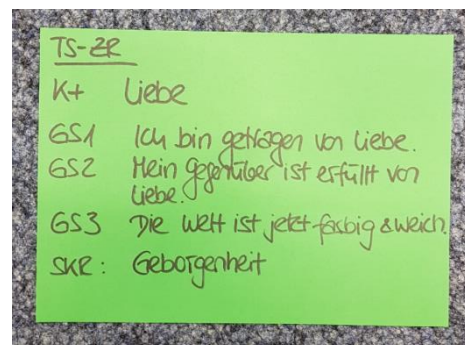 TS-ZR
K+ Liebe
GS1 Ich bin getragen von Liebe.
GS2 Mein Gegenüber ist erfüllt von
Liebe.
GS3 Die Welt ist jetzt farbig & weich.
SKR: Geborgenheit